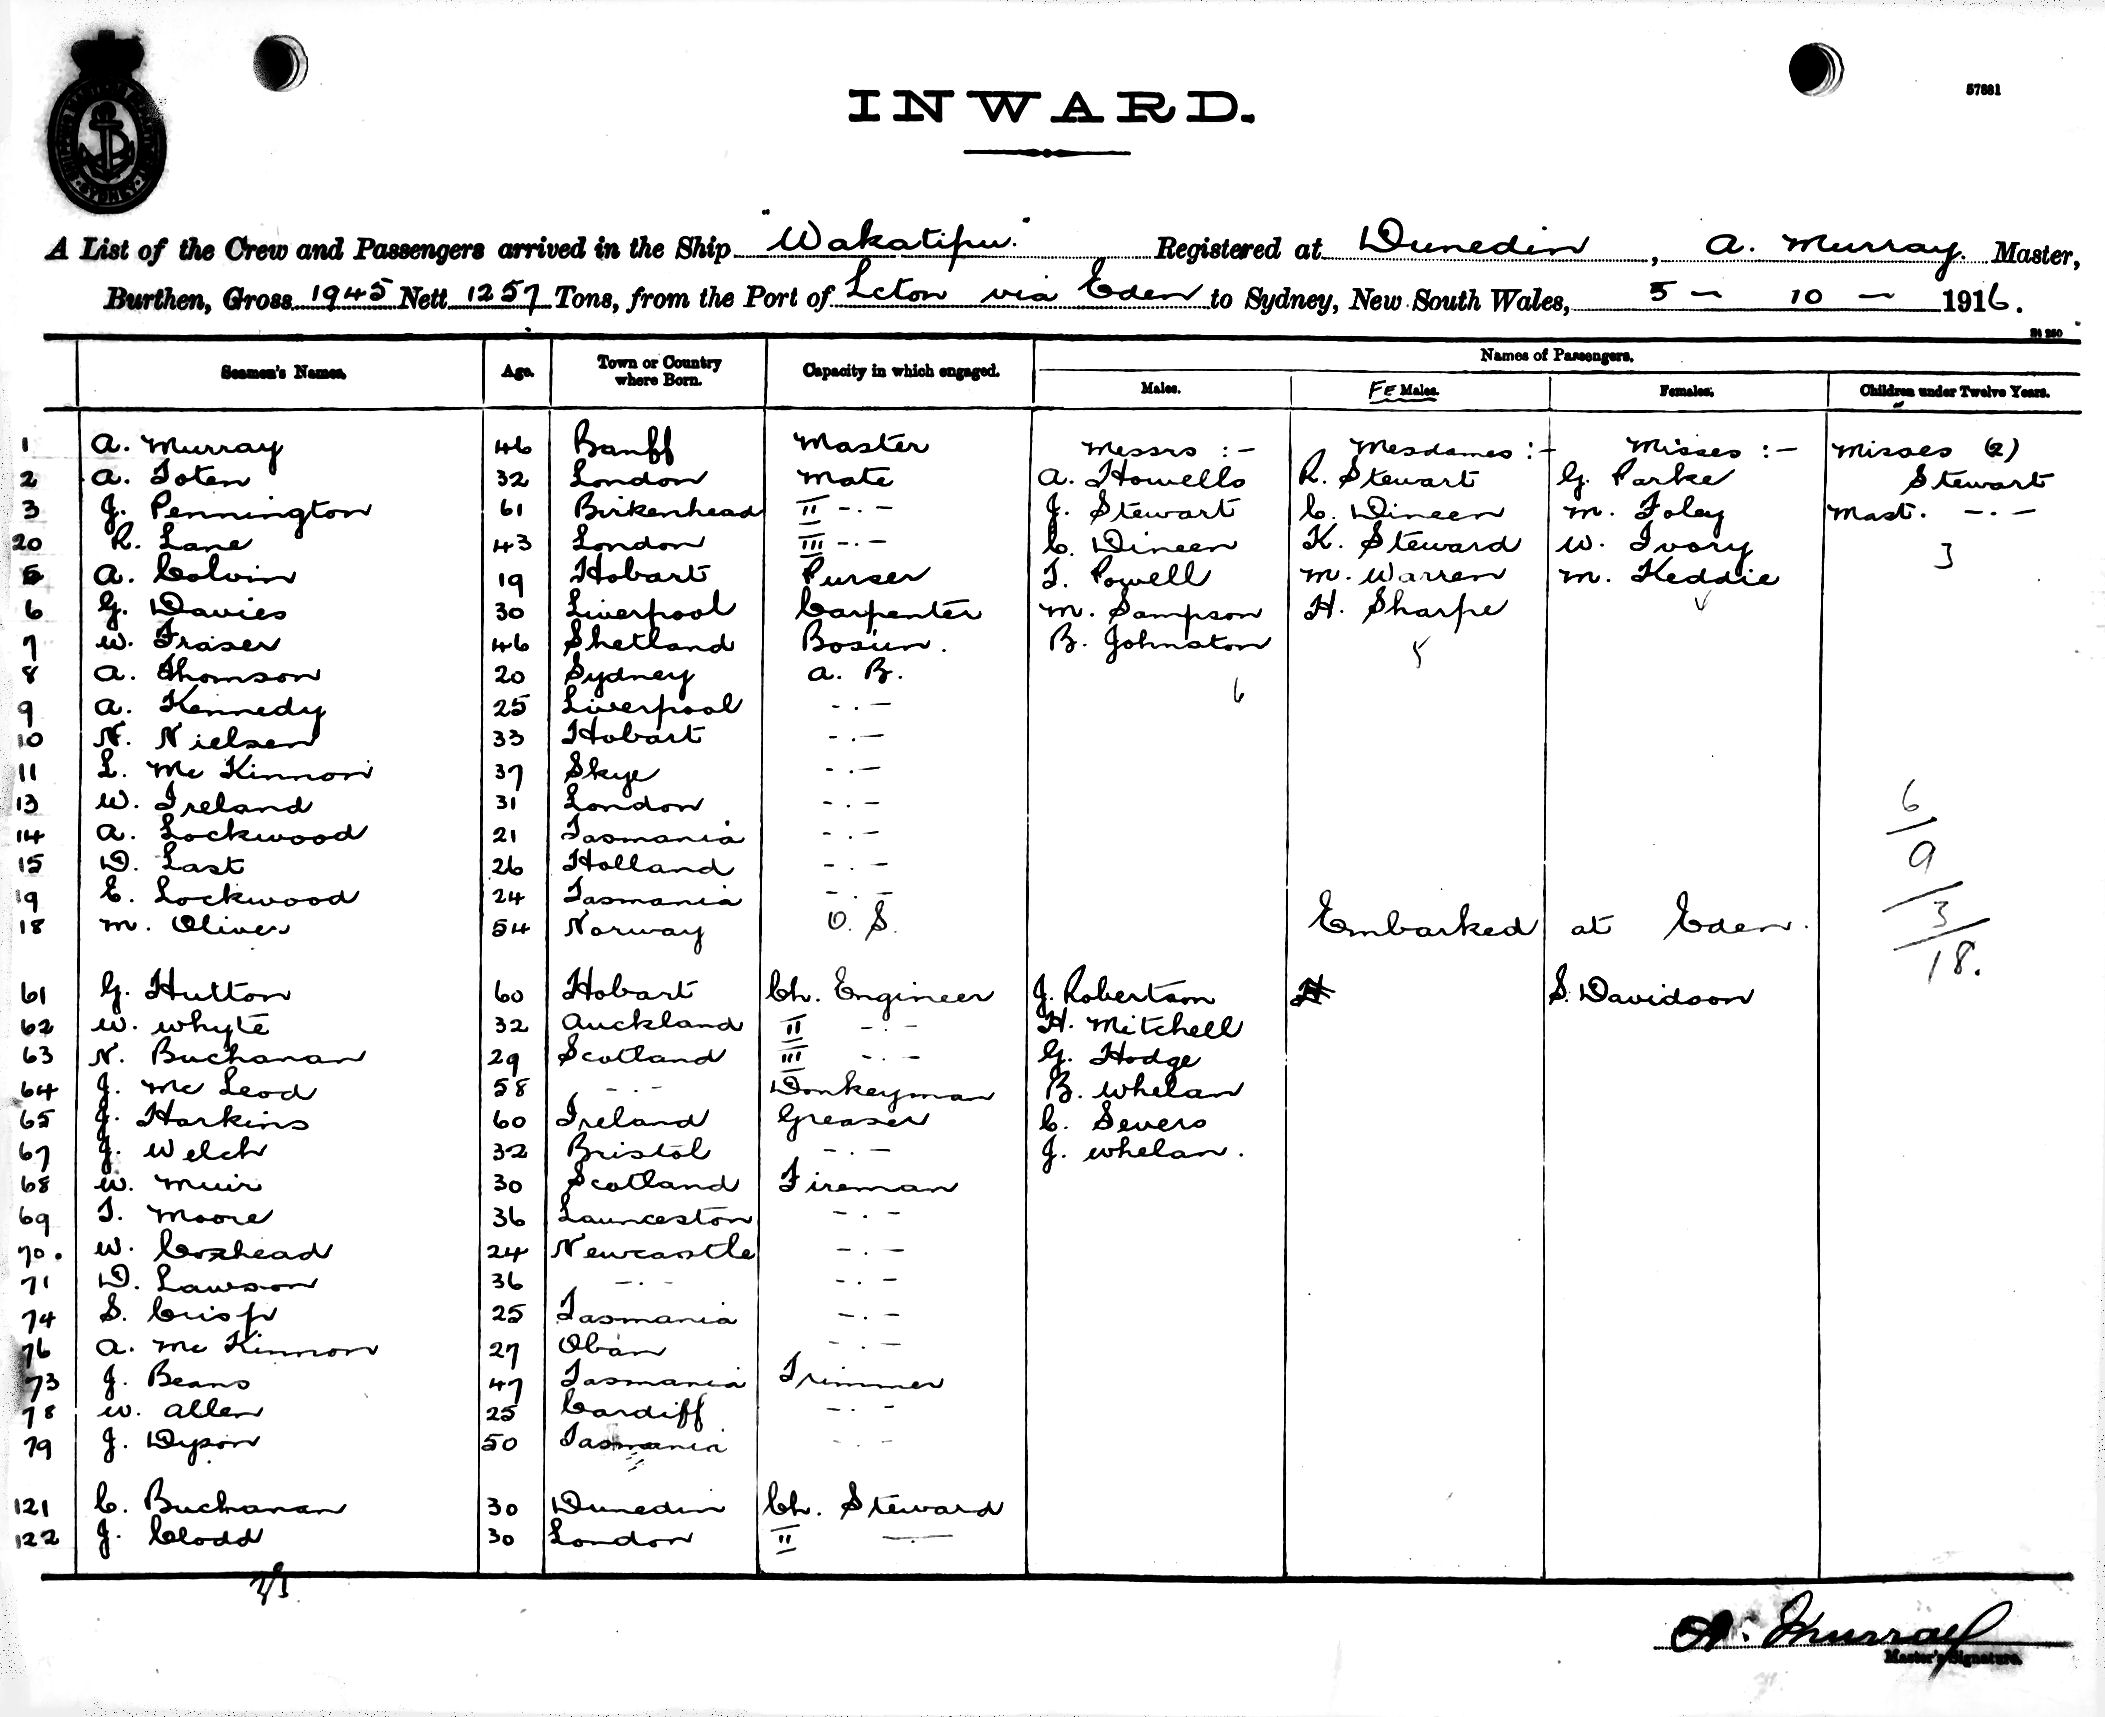 57881
INWARD.
A List of the Crew and Passengers arrived in the Ship "Wakatipu." Registered at Dunedin, A. Murray. Master,
Burthen, Gross 1945 Nett 1257 Tons, from the Port of Lcton via Eden to Sydney, New South Wales, 5 - 10 - 1916.
St 250
Names of Passengers.
Seamen's Names. Age. Town or Country where Born. Capacity in which engaged. Males. FE Males. Females. Children under Twelve Years.
1 A. Murray 46 Banff Master Messrs :- Mesdames :- Misses :- Misses (2)
2 A. Toten 32 London Mate A. Howells R. Stewart G. Parke Stewart
3 J. Pennington 61 Birkenhead II -.- J. Stewart C. Dineen M. Foley Mast. -.-
20 R. Lane 43 London III -.- C. Dineen K. Steward W. Ivory 3
5 A. Colvin 19 Hobart Purser T. Powell M. Warren M. Keddie
6 G. Davies 30 Liverpool Carpenter M. Sampson H. Sharpe
7 W. Fraser 46 Shetland Bosun. B. Johnston 5
8 A. Thomson 20 Sydney A. B.
9 A. Kennedy 25 Liverpool -.- 6
10 N. Nielsen 33 Hobart -.-
11 L. McKinnon 37 Skye -.-
13 W. Ireland 31 London -.- 6/
14 A. Lockwood 21 Tasmania -.- 9/
15 D. Last 26 Holland -.-
19 E. Lockwood 24 Tasmania -.- 3/
18 M. Oliver 54 Norway O. S. Embarked at Eden. 18.
61 G. Hutton 60 Hobart Ch. Engineer J. Robertson S. Davidson
62 W. Whyte 32 Auckland II -.- H. Mitchell
63 N. Buchanan 29 Scotland III -.- G. Hodge
64 J. McLeod 58 -.- Donkeyman B. Whelan
65 J. Harkins 60 Ireland Greaser C. Severs
67 J. Welch 32 Bristol -.- J. Whelan.
68 W. Muir 30 Scotland Fireman
69 T. Moore 36 Launceston -.-
70. W. Coxhead 24 Newcastle -.-
71 D. Lawson 36 -.- -.-
74 S. Crisp 25 Tasmania -.-
76 A. McKinnon 27 Oban -.-
73 J. Beans 47 Tasmania Trimmer
78 W. Allen 25 Cardiff -.-
79 J. Dyson 50 Tasmania -.-
121 C. Buchanan 30 Dunedin Ch. Steward
122 J. Clodd 30 London II —
A. Murray
Master's Signature.